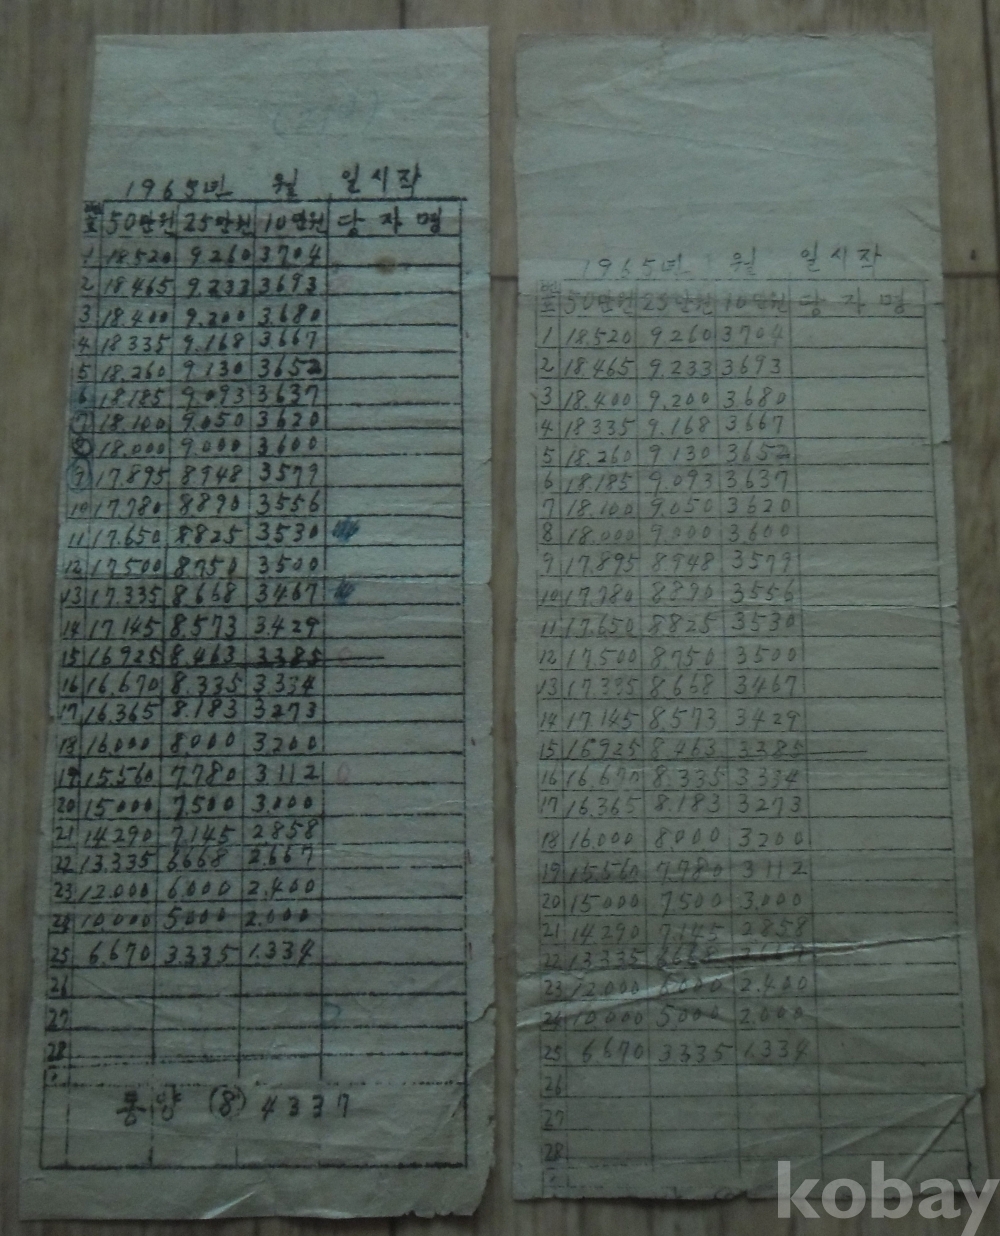 1965년 월 일시작
번호 50만원 25만원 10만원 당자명
1 18.520 9.260 3704
2 18.465 9.233 3693
3 18.400 9.200 3.680
4 18335 9.168 3667
5 18.260 9.130 3652
6 18.185 9.093 3637
7 18.100 9.050 3620
8 18.000 9.000 3.600
9 17.895 8948 3579
10 17.780 8890 3556
11 17.650 8825 3530
12 17.500 8.750 3500
13 17.335 8.668 3467
14 17.145 8.573 3.429
15 16925 8.463 3385
16 16.670 8.335 3334
17 16.365 8.183 3273
18 16.000 8.000 3200
19 15.560 7.780 3112
20 15000 7.500 3.000
21 14.290 7.145 2858
22 13.335 6668 2.667
23 12.000 6.000 2.400
24 10.000 5000 2.000
25 6.670 3335 1.334
26
27
28
(8) 4337
1965년 월 일시작
번호 50만원 25만원 10만원 당자명
1 18.520 9260 3704
2 18.465 9.233 3693
3 18.400 9.200 3.680
4 18335 9.168 3667
5 18.260 9.130 3652
6 18.185 9.093 3637
7 18.100 9.050 3620
8 18.000 9.000 3600
9 17.895 8948 3579
10 17.780 8890 3556
11 17.650 8.825 3530
12 17.500 8.750 3500
13 17.335 8.668 3467
14 17.145 8.573 3429
15 16925 8.463 3385
16 16.670 8.335 3334
17 16.365 8.183 3273
18 16.000 8000 3200
19 15.560 7.780 3112
20 15000 7500 3.000
21 14.290 7.145 2858
22 13.335 6668 2667
23 12.000 6.000 2.400
24 10.000 5000 2.000
25 6.670 3335 1.334
26
27
28
kobay